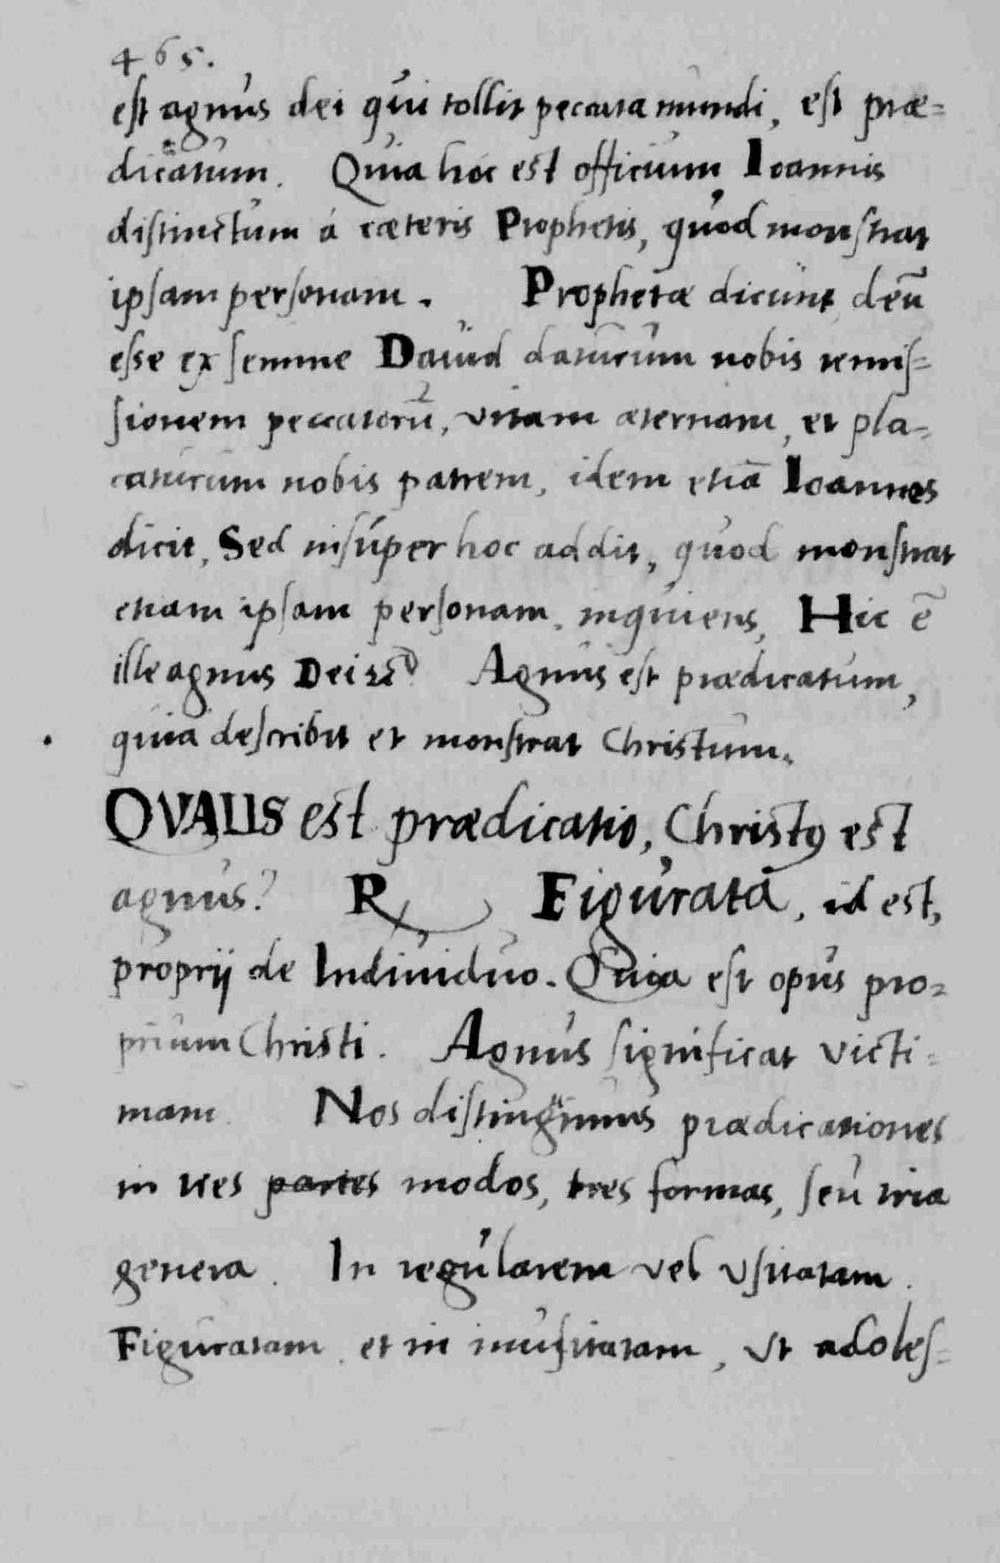 465.
est agnus dei qui tollit peccata mundi, est præ=
dicatum. Quia hoc est officium Ioannis
distinctum á cæteris Prophetis, quod monstrat
ipsam personam. Prophetæ dicunt deū
esse ex semine Dauid daturum nobis remis=
sionem peccatorū, vitam æternam, et pla=
caturum nobis patrem, idem etiā Ioannes
dicit, Sed insúper hoc addit, quod monstrat
etiam ipsam personam. inquiens, Hic ē
ille agnus Dei Agnus est prædicatum,
quia describit et monstrat Christum.
QVALIS est prædicatio, Christꝰ est
agnus? R Figurata, id est,
proprij de Indiuiduo. Quia est opus pro=
prium Christi. Agnus significat victi=
mam. Nos distinguimus prædicationes
in tres partes modos, tres formas, seu tria
genera. In regularem vel vsitatam.
Figuratam. et in inusitatam, vt adoles=